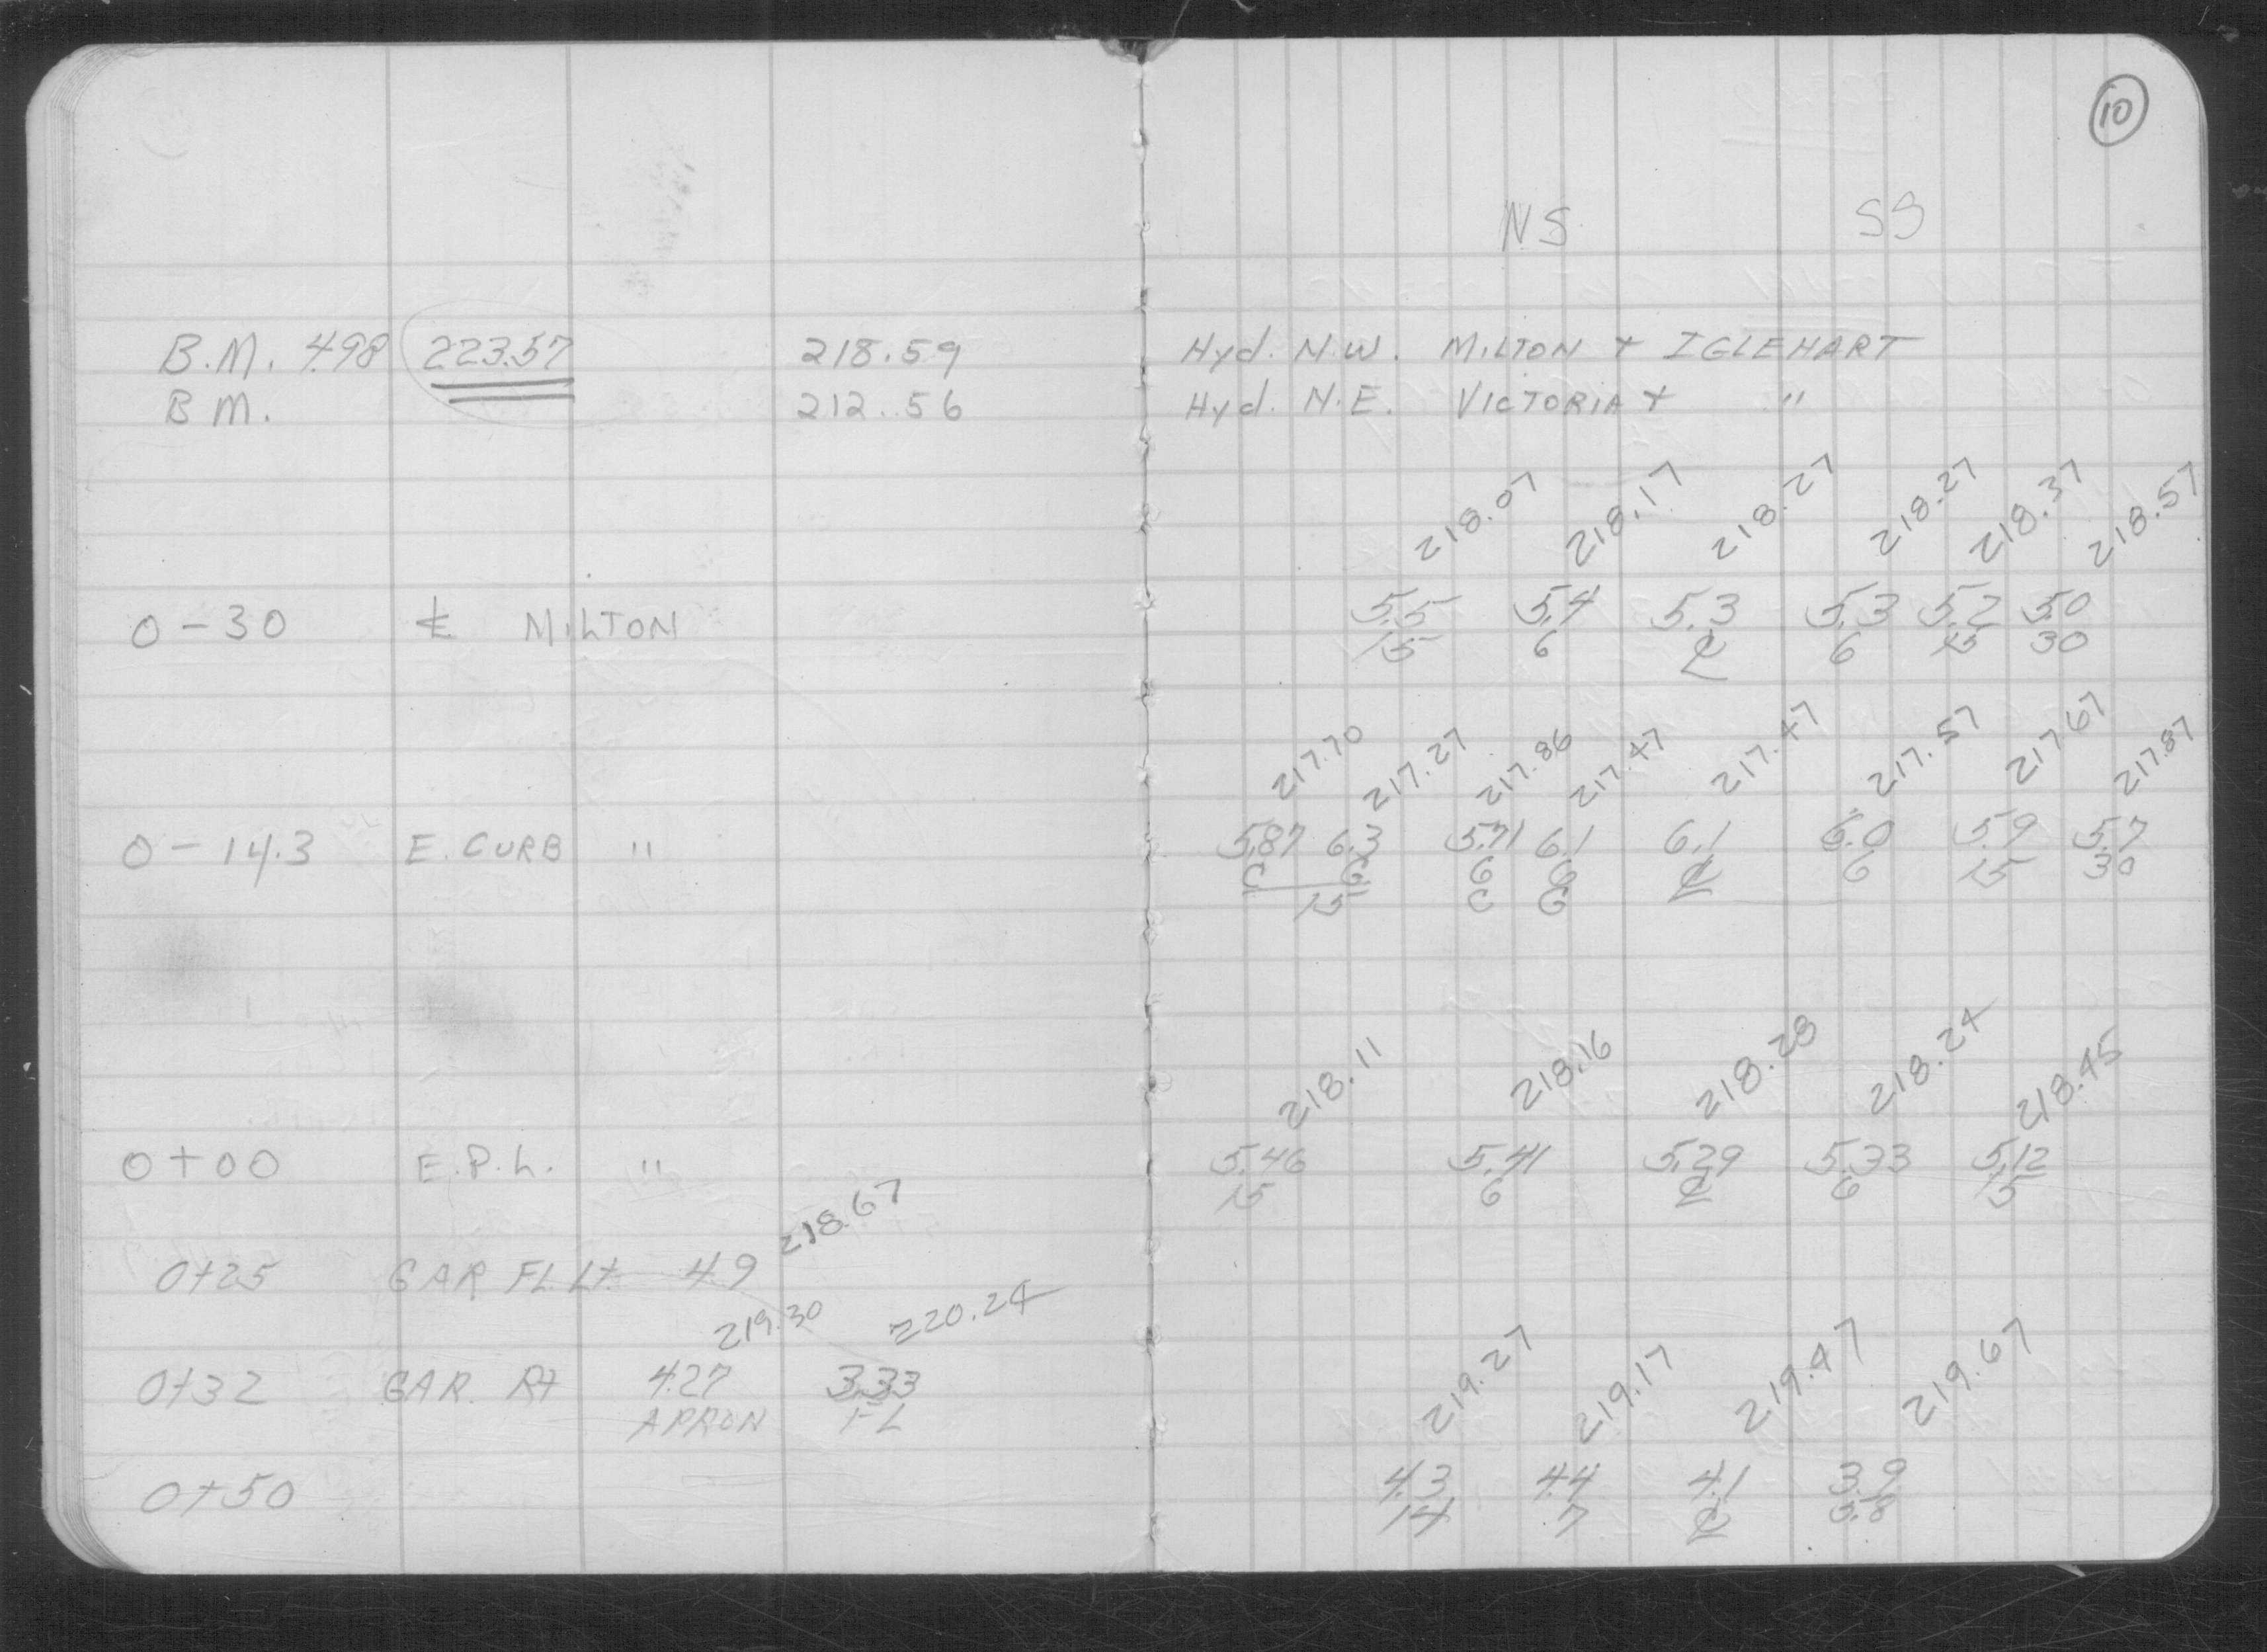 10
NS SS
B.M. 4.98 223.57 218.59 Hyd. N.W. MILTON + IGLEHART
B.M. 212.56 Hyd. N.E. VICTORIA + "
218.07 218.17 218.27 218.27 218.37 218.57
0-30 ℄ MILTON 5.5 5.4 5.3 5.3 5.2 5.0
15 6 ℄ 6 15 30
217.70 217.27 217.86 217.47 217.47 217.57 217.67 217.87
0-14.3 E. CURB " 5.87 6.3 5.71 6.1 6.1 6.0 5.9 5.7
C G 6 6 ℄ 6 15 30
15 C G
218.11 218.16 218.28 218.24 218.45
0+00 E.P.L. " 5.46 5.41 5.29 5.33 5.12
15 6 ℄ 6 15
218.67
0+25 GAR FL. Lt 4.9
219.30 220.24
219.27 219.17 219.47 219.67
0+32 GAR. Rt 4.27 3.33
APRON FL
0+50 4.3 4.4 4.1 3.9
14 7 ℄ 5.8